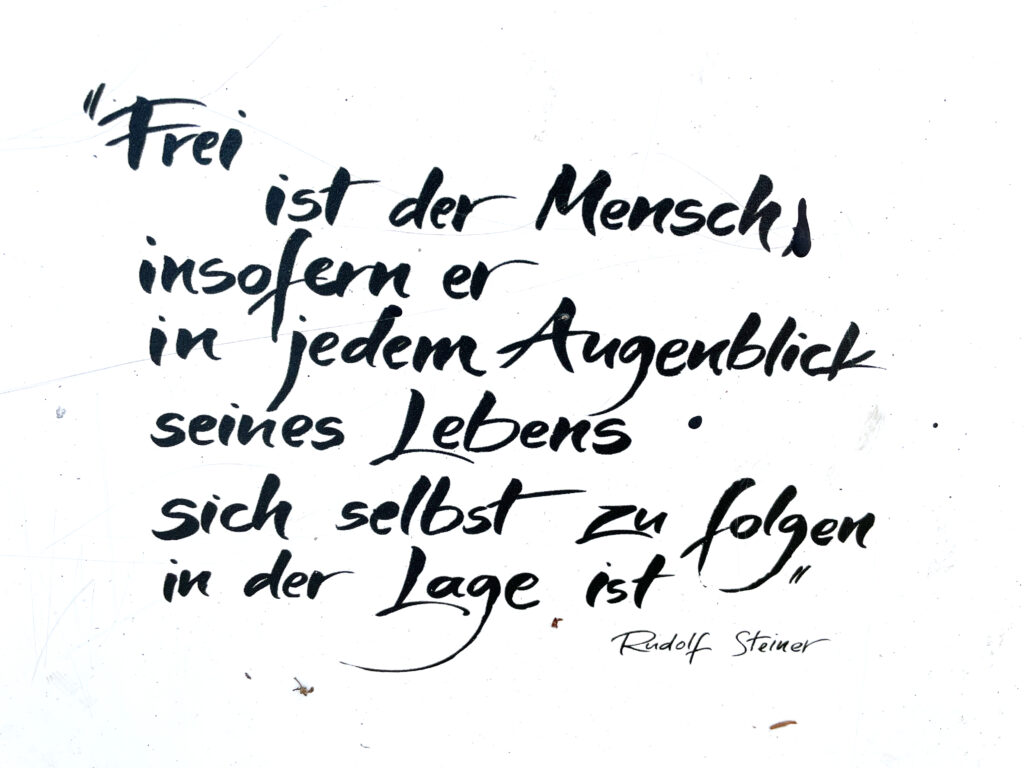 "Frei
ist der Mensch,
insofern er
in jedem Augenblick
seines Lebens
sich selbst zu folgen
in der Lage ist"
Rudolf Steiner